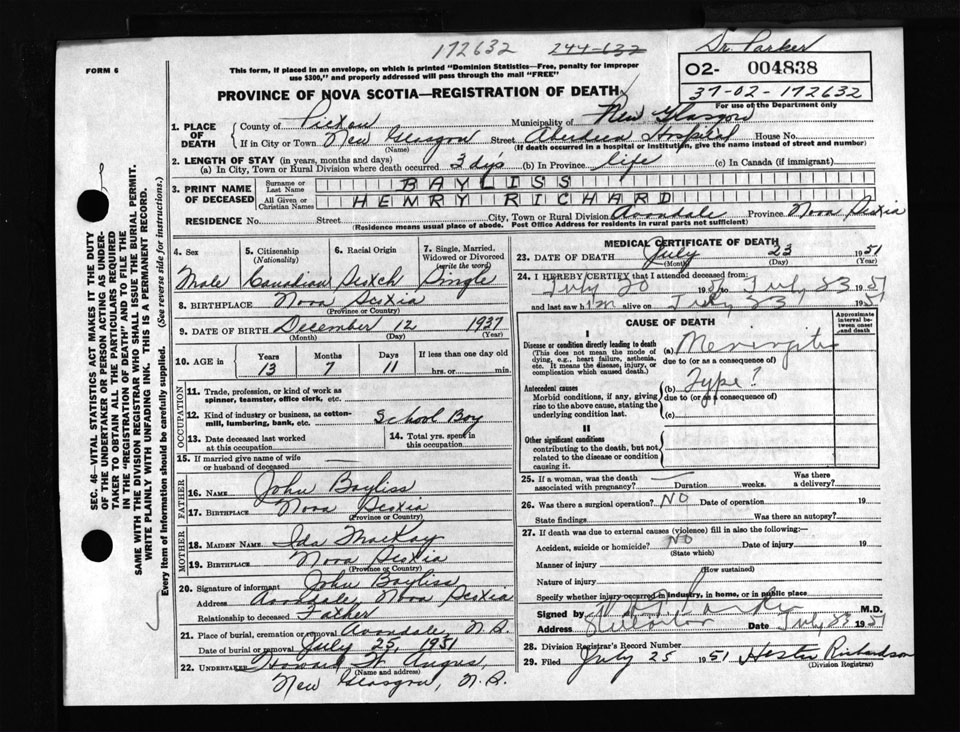 172632 244-632
Dr. Parker
FORM 6
This form, if placed in an envelope, on which is printed "Dominion Statistics—Free, penalty for improper
use $300," and properly addressed will pass through the mail "FREE"
02- 004838
37-02-172632
For use of the Department only
PROVINCE OF NOVA SCOTIA—REGISTRATION OF DEATH
1. PLACE OF DEATH
County of Pictou Municipality of New Glasgow
If in City or Town New Glasgow Street Aberdeen Hospital House No.
(Name) (If death occurred in a hospital or institution, give the name instead of street and number)
2. LENGTH OF STAY (in years, months and days)
(a) In City, Town or Rural Division where death occurred 3 dys (b) In Province life (c) In Canada (if immigrant)
3. PRINT NAME OF DECEASED
Surname or Last Name BAYLISS
All Given or Christian Names HENRY RICHARD
RESIDENCE No. Street City, Town or Rural Division Avondale Province Nova Scotia
(Residence means usual place of abode. Post Office Address for residents in rural parts not sufficient)
4. Sex 5. Citizenship (Nationality) 6. Racial Origin 7. Single, Married, Widowed or Divorced (write the word)
Male Canadian Scotch Single
8. BIRTHPLACE Nova Scotia
(Province or Country)
9. DATE OF BIRTH December 12 1937
(Month) (Day) (Year)
10. AGE in Years Months Days If less than one day old
13 7 11 hrs. or min.
OCCUPATION
11. Trade, profession, or kind of work as
spinner, teamster, office clerk, etc.
12. Kind of industry or business, as cotton-
mill, lumbering, bank, etc. School Boy
13. Date deceased last worked
at this occupation
14. Total yrs. spent in
this occupation
15. If married give name of wife
or husband of deceased
FATHER
16. NAME John Bayliss
17. BIRTHPLACE Nova Scotia
(Province or Country)
MOTHER
18. MAIDEN NAME Ida MacKay
19. BIRTHPLACE Nova Scotia
(Province or Country)
20. Signature of informant John Bayliss
Address Avondale, Nova Scotia
Relationship to deceased Father
21. Place of burial, cremation or removal Avondale, N.S.
Date of burial or removal July 25, 1951
22. UNDERTAKER Howard W. Angus,
(Name and address)
New Glasgow, N.S.
MEDICAL CERTIFICATE OF DEATH
23. DATE OF DEATH July 23 1951
(Month) (Day) (Year)
24. I HEREBY CERTIFY that I attended deceased from
July 20 1951 to July 23 1951
and last saw him alive on July 23 1951
CAUSE OF DEATH
Approximate interval between onset and death
I
Disease or condition directly leading to death
(This does not mean the mode of
dying, e.g., heart failure, asthenia,
etc. It means the disease, injury, or
complication which caused death.)
(a) Meningitis
due to (or as a consequence of)
Antecedent causes
Morbid conditions, if any, giving
rise to the above cause, stating the
underlying condition last.
(b) Type?
due to (or as a consequence of)
(c)
II
Other significant conditions
contributing to the death, but not
related to the disease or condition
causing it.
25. If a woman, was the death
associated with pregnancy? Duration weeks. Was there
a delivery?
26. Was there a surgical operation? NO Date of operation 19
State findings Was there an autopsy?
27. If death was due to external causes (violence) fill in also the following:—
Accident, suicide or homicide? NO Date of injury 19
(State which)
Manner of injury
(How sustained)
Nature of injury
Specify whether injury occurred in industry, in home, or in public place
Signed by Parker M.D.
Address Date July 23 1951
28. Division Registrar's Record Number
29. Filed July 25 1951 Hester Richardson
(Division Registrar)
SEC. 46—VITAL STATISTICS ACT MAKES IT THE DUTY
OF THE UNDERTAKER OR PERSON ACTING AS UNDER-
TAKER TO OBTAIN ALL THE PARTICULARS REQUIRED
IN THE "REGISTRATION OF DEATH" AND TO FILE THE
SAME WITH THE DIVISION REGISTRAR WHO SHALL ISSUE THE BURIAL PERMIT.
WRITE PLAINLY WITH UNFADING INK. THIS IS A PERMANENT RECORD.
Every item of information should be carefully supplied. (See reverse side for instructions.)